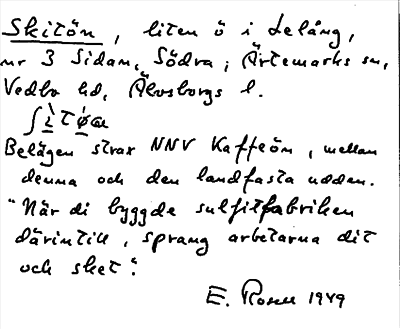 Skitön, liten ö i Lelång,
nr 3 Sidan, Södra, Ärtemarks sn,
Vedbo hd, Älvsborgs l.
Belägen strax NNV Kaffeön, mellan
denna och den landfasta udden.
"När di byggde sulfitfabriken
därintill, sprang arbetarna dit
och sket".
E. Rosell 1949